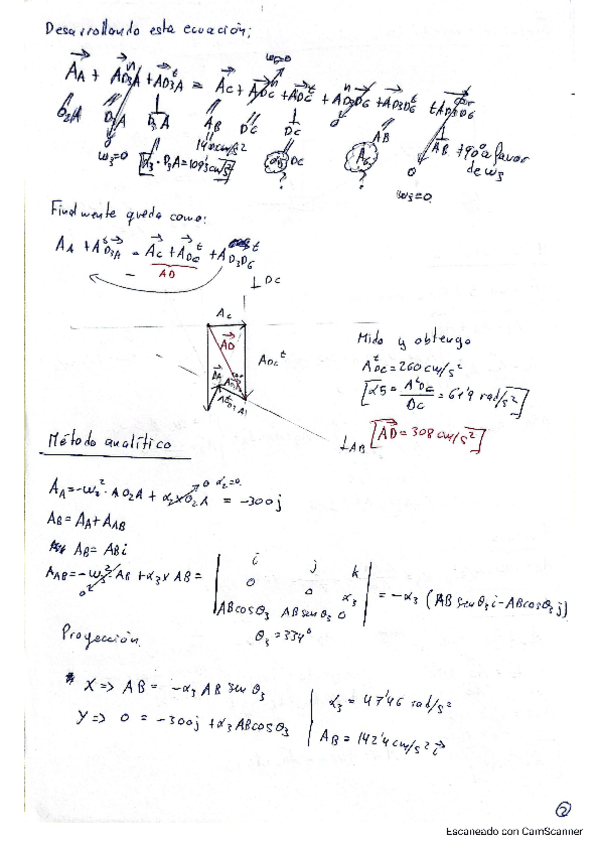 Desarrollando esta ecuación;
AA + AD3A^n + AD3A^t = AC + ADC^n + ADC^t + AD3D6^n + AD3D6^t + AD3D6
w5=0
D3A D3A AB DC DC AB AB +90º a favor de w3
w3=0
140cm/s²
α3 · D3A = 109'3 cm/s²
α5 DC
? ?
w3=0
Finalmente queda como:
AA + AD3A^t = AC + ADC^t + AD3D6^t
AD
⊥DC
AC
AD
ADC^t
⊥AB
Mido y obtengo
A^tDC = 260 cm/s²
[α5 = A^tDC / DC = 61'9 rad/s²]
[AD = 308 cm/s²]
Método analítico
AA = -w2² · AO2A + α2 x O2A = -300j
0 α2=0
AB = AA + AAB
AB = ABi
AAB = -w3² · AB + α3 x AB = | i j k | 0 0 α3 | ABcosθ3 ABsenθ3 0 | = -α3 (ABsenθ3 i - ABcosθ3 j)
θ3 = 334º
Proyección
X => AB = -α3 AB sen θ3
Y => 0 = -300j + α3 ABcosθ3
α3 = 47'46 rad/s²
AB = 142'4 cm/s² i
2
Escaneado con CamScanner